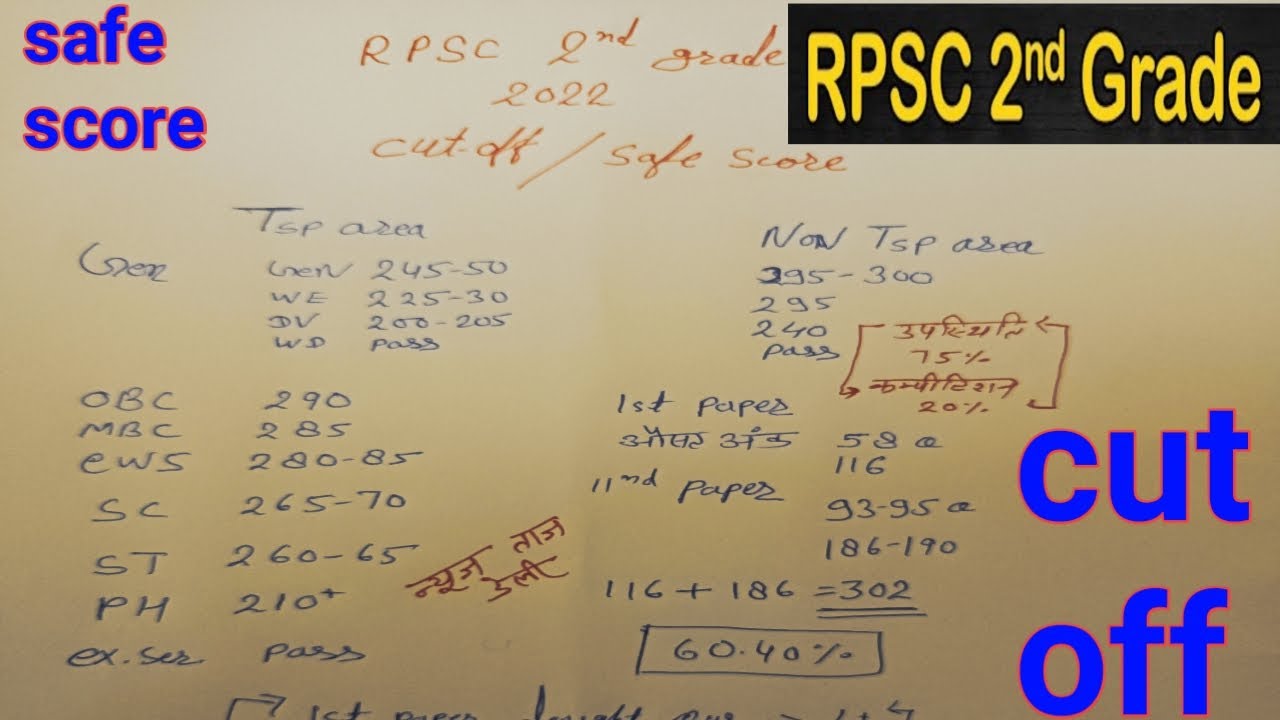 safe
score
RPSC 2nd grade
2022
cut-off / safe score
RPSC 2nd Grade
Tsp area
Gen GeN 245-50
WE 225-30
DV 200-205
WD pass
NoN Tsp area
295-300
295
240
pass
उपस्थिति
75%
कम्पीटिशन
20%
OBC 290
MBC 285
EWS 280-85
SC 265-70
ST 260-65
PH 210+
ex.ser pass
न्यूज ताज
डेली
1st paper
औसत अंक 58
116
11nd paper
93-95
186-190
116 + 186 = 302
60.40%
1st paper
cut
off